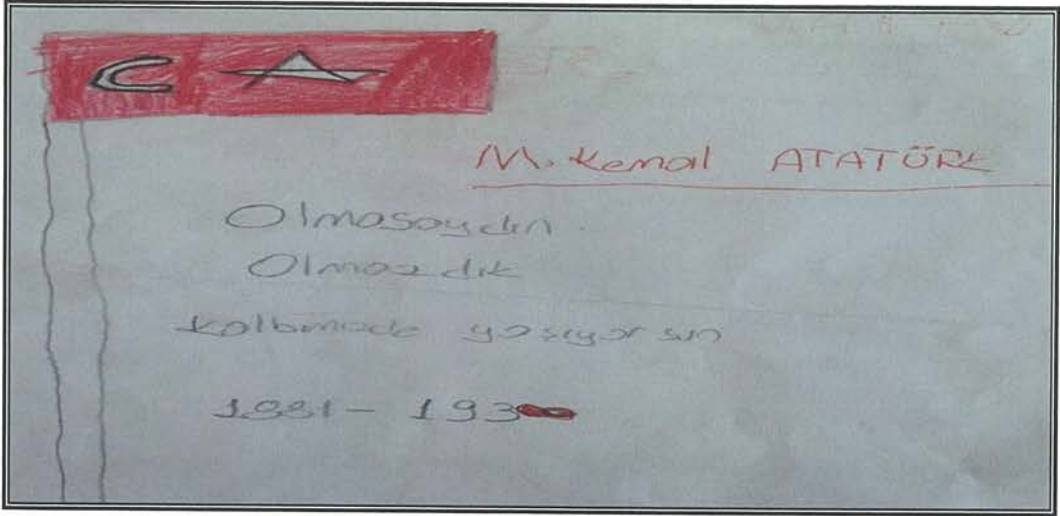 M. Kemal ATATÜRK
Olmasaydın
Olmazdık
Kalbimizde yaşıyorsun
1881 - 193∞